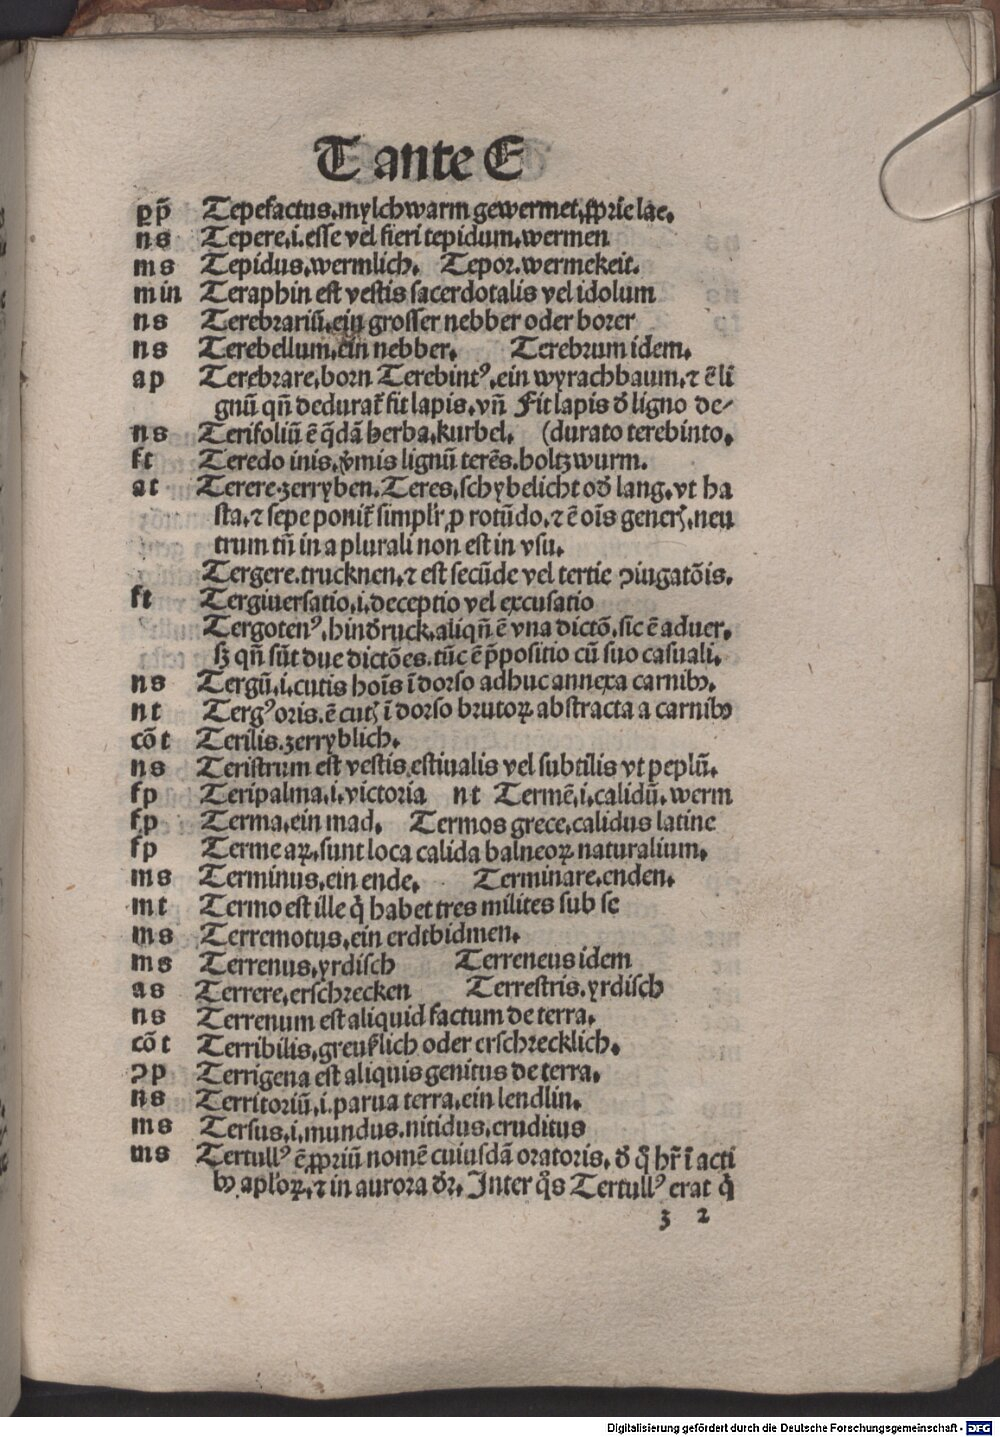 T ante E
ꝑp̄ Tepefactus.mylchwarm gewermet,ꝓpri̅e lac.
ns Tepere.i.esse vel fieri tepidum.wermen
ms Tepidus.wermlich. Tepor.wermekeit.
min Teraphin est vestis sacerdotalis vel idolum
ns Terebrariū.ein grosser nebber oder borer
ns Terebellum.ein nebber. Terebrum idem.
ap Terebrare.born Terebintꝰ.ein wyrachbaum.⁊ ē li
gnū qn̄ dedurat᷑ fit lapis.vn̄ Fit lapis ð ligno de⸗
ns Terifoliū ē q̄dā herba.kurbel. (durato terebinto.
ft Teredo inis.v̓mis lignū terēs.holtzwurm.
at Terere.zerryben.Teres.schybelicht oð lang.vt ha
sta.⁊ sepe ponit᷑ simpl'r ꝓ rotūdo.⁊ ē oīs generꝭ.neu
trum tn̄ in a plurali non est in vsu.
Tergere.trucknen.⁊ est secūde vel tertie ꝯiugatōis.
ft Tergiuersatio.i.deceptio vel excusatio
Tergotenꝰ.hinðruck.aliqn̄ ē vna dictō.sic ē aduer.
sꝫ qn̄ sūt due dictōes.tūc ē p̄positio cū suo casuali.
ns Tergū.i.cutis hoīs ī dorso adhuc annexa carnibꝰ.
nt Tergꝰ oris.ē cutꝭ ī dorso brutoꝝ abstracta a carnibꝰ
cō t Terilis.zerryblich.
ns Teristrum est vestis estiualis vel subtilis vt peplū.
fp Teripalma.i.victoria nt Termē.i.calidū.werm
fp Terma.ein mad. Termos grece.calidus latine
fp Terme aꝝ.sunt loca calida balneoꝝ naturalium.
ms Terminus.ein ende. Terminare.enden.
mt Termo est ille q̇ habet tres milites sub se
ms Terremotus.ein erdtbidmen.
ms Terrenus.yrdisch Terreneus idem
as Terrere.erschrecken Terrestris.yrdisch
ns Terrenum est aliquid factum de terra.
cō t Terribilis.greuſlich oder erschrecklich.
ꝯp Terrigena est aliquis genitus de terra.
ns Territoriū.i.parua terra.ein lendlin.
ms Tersus.i.mundus.nitidus.eruditus
ms Tertullꝰ ē ꝓpriū nomē cuiusdā oratoris. ð q̇ hr̄ ī acti
bꝰ apl'oꝝ.⁊ in aurora ðr. Inter q̊s Tertullꝰ erat q̇
z 2
Digitalisierung gefördert durch die Deutsche Forschungsgemeinschaft - DFG